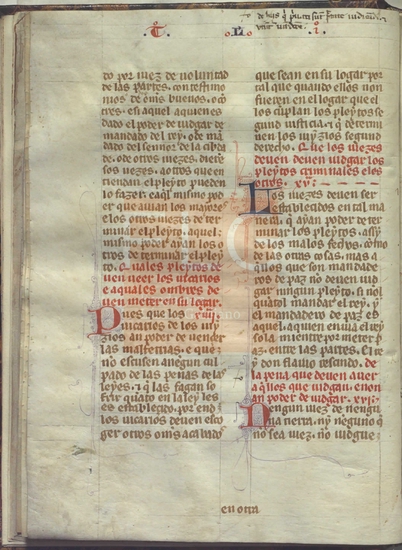 .T. .L. .i.
do por iuez de uoluntad
de las partes, con testimo
nios de oms buenos, o co
tres. es aquel aquien es
dado el poder de iudgar de
mandado del rey. o de ma
dado del sennor de la cibda
de. o de otros iuezes. Et estos
sos uezes. a otros que en
tiendan el pleyto pueden
lo fazer. ca aquel mismo po
der que auian los mayores
e los otros iuezes de ter
minar el pleyto. aquel
mismo poder ayan los o
tros de terminar el pley
to. Quales pleytos de
uen ueer los uicarios
e aquales ombres de
uen meter en su logar.
Pues que los xviii.
uicarios de los iuy
zios an poder de uencer
las malfetrias. e que
no escusen a negun cul
pado de las penas de las
leyes. i que las fagan so
frir quanto en la ley les
es establecido. por end
los uicarios deuen esco
ger otros oms acabado
que sean en su logar por
tal que quando ellos non
fueren en el logar que el
los cuplan los pleytos se
gund iusticia. i que determi
nen los iuyzios segund
derecho. Que los iuezes
deuen deuen iudgar los
pleytos criminales e los
otros. xv.
Los iuezes deuen ser
establecidos en tal ma
nera. que ayan poder de ter
minar los pleytos. assy
de los malos fechos, como
de las otras cosas. mas a
quellos que son mandade
ros de paz no deuen iud
gar ningun pleyto. si nol
qual mandar el rey. y
el mandadero de paz es
aquel. a quien enuia el rey
sola mientre por meter p
az. entre las partes. El re
y don flauio rescindo. de
la pena que deuen auer
aqlles que iudgan. e non
an poder de iudgar. xvi.
Nengun iuez de nengu
na tierra. ny neguno que
no sea iuez. no iudgue
en otra